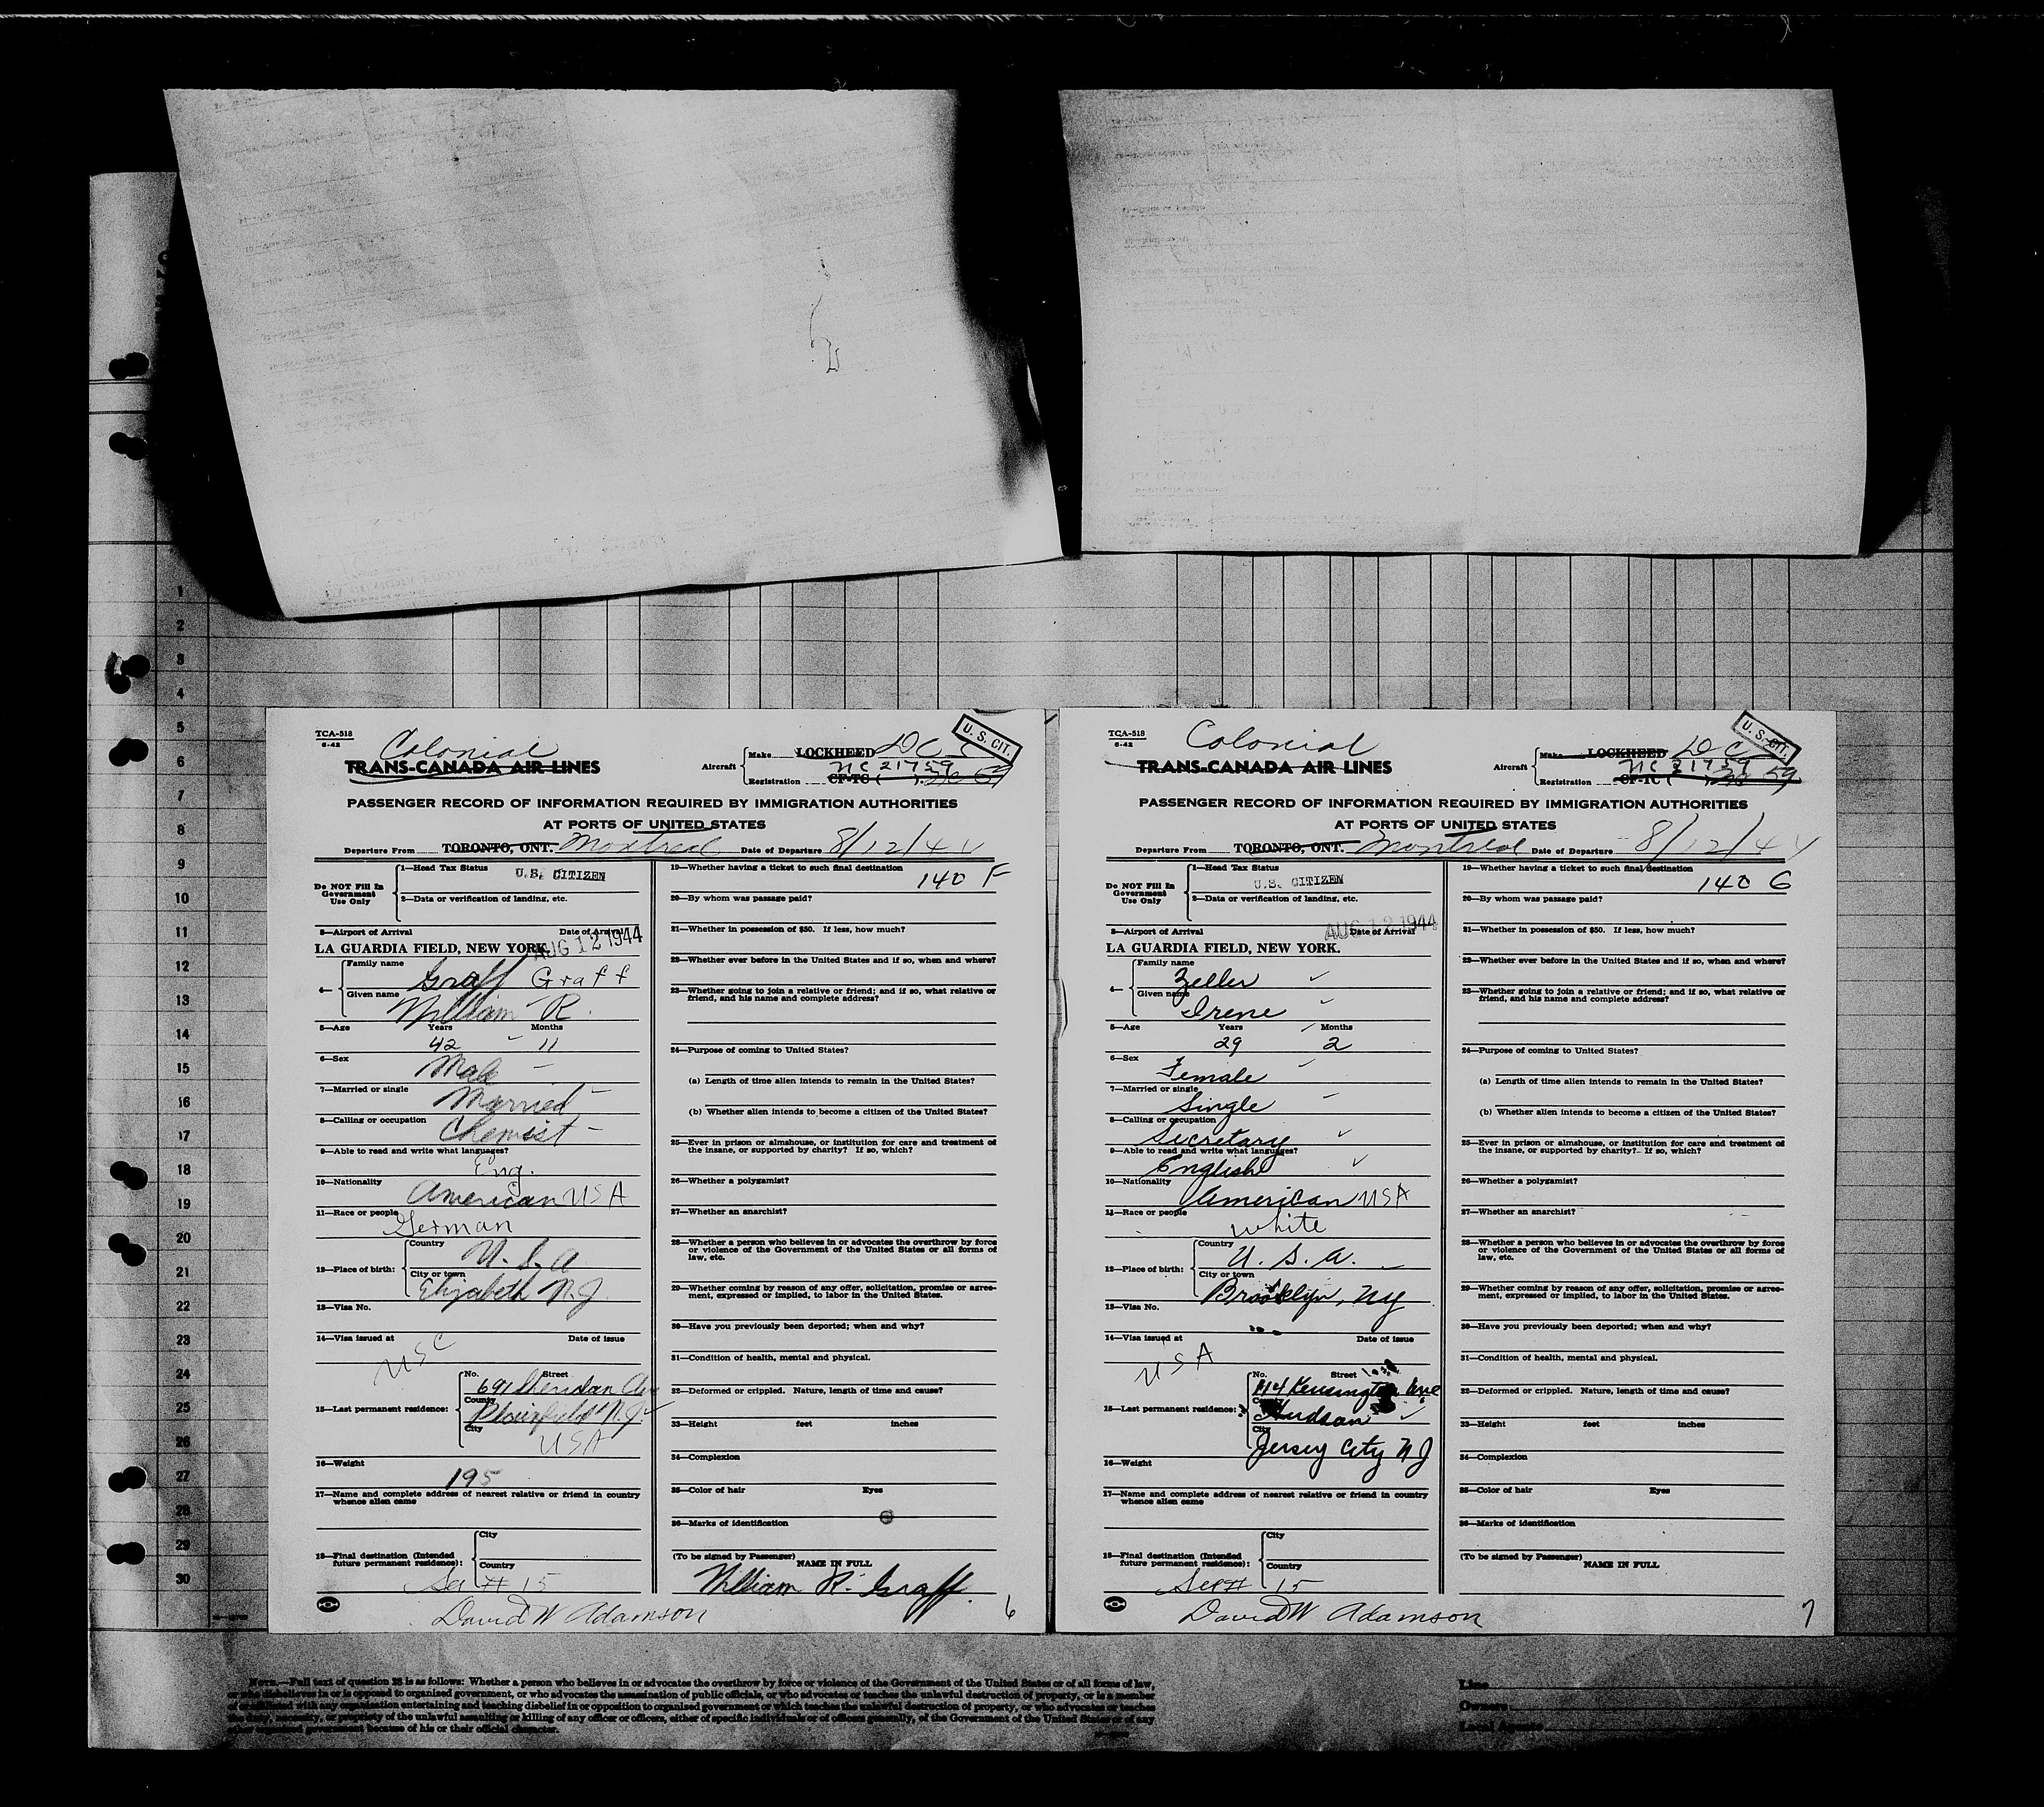 1
2
3
4
5
6
7
8
9
10
11
12
13
14
15
16
17
18
19
20
21
22
23
24
25
26
27
28
29
30
TCA-518
6-42
Colonial
TRANS-CANADA AIR LINES
Aircraft
Make LOCKHEED DC
NC 21759
Registration CF-TC (
U. S. CIT.
PASSENGER RECORD OF INFORMATION REQUIRED BY IMMIGRATION AUTHORITIES
AT PORTS OF UNITED STATES
Departure From TORONTO, ONT. Montreal Date of Departure 8/12/44
Do NOT Fill In Government Use Only
1—Head Tax Status U.S. CITIZEN
2—Data or verification of landing, etc.
3—Airport of Arrival Date of Arrival
LA GUARDIA FIELD, NEW YORK. AUG 12 1944
4—
Family name Graff Graff
Given name William R.
5—Age Years Months
42 11
6—Sex Male
7—Married or single Married
8—Calling or occupation Chemist
9—Able to read and write what languages?
Eng.
10—Nationality American USA
11—Race or people German
12—Place of birth:
Country U. S. A
City or town Elizabeth N.J.
13—Visa No.
14—Visa issued at Date of issue
USC
15—Last permanent residence:
No. Street
691 Sheridan Ave
County
Plainfield N.J.
City USA
16—Weight 195
17—Name and complete address of nearest relative or friend in country
whence alien came
18—Final destination (Intended
future permanent residence):
City
Country
15
David W Adamson
19—Whether having a ticket to such final destination
140 F
20—By whom was passage paid?
21—Whether in possession of $50. If less, how much?
22—Whether ever before in the United States and if so, when and where?
23—Whether going to join a relative or friend; and if so, what relative or
friend, and his name and complete address?
24—Purpose of coming to United States?
(a) Length of time alien intends to remain in the United States?
(b) Whether alien intends to become a citizen of the United States?
25—Ever in prison or almshouse, or institution for care and treatment of
the insane, or supported by charity? If so, which?
26—Whether a polygamist?
27—Whether an anarchist?
28—Whether a person who believes in or advocates the overthrow by force
or violence of the Government of the United States or all forms of
law, etc.
29—Whether coming by reason of any offer, solicitation, promise or agree-
ment, expressed or implied, to labor in the United States.
30—Have you previously been deported; when and why?
31—Condition of health, mental and physical.
32—Deformed or crippled. Nature, length of time and cause?
33—Height feet inches
34—Complexion
35—Color of hair Eyes
36—Marks of identification
(To be signed by Passenger)
NAME IN FULL
William R. Graff
6
TCA-518
6-42
Colonial
TRANS-CANADA AIR LINES
Aircraft
Make LOCKHEED DC
NC 21759
Registration CF-TC (
U. S. CIT.
PASSENGER RECORD OF INFORMATION REQUIRED BY IMMIGRATION AUTHORITIES
AT PORTS OF UNITED STATES
Departure From TORONTO, ONT. Montreal Date of Departure 8/12/44
Do NOT Fill In Government Use Only
1—Head Tax Status
U.S. CITIZEN
2—Data or verification of landing, etc.
3—Airport of Arrival Date of Arrival
AUG 12 1944
LA GUARDIA FIELD, NEW YORK.
4—
Family name Zeller
Given name Irene
5—Age Years Months
29 2
6—Sex Female
7—Married or single Single
8—Calling or occupation Secretary
9—Able to read and write what languages?
English
10—Nationality American USA
11—Race or people white
12—Place of birth:
Country U. S. A.
City or town Brooklyn, NY
13—Visa No.
14—Visa issued at Date of issue
USA
15—Last permanent residence:
No. Street
114 Kensington Ave
Hudson
City
Jersey City N J
16—Weight
17—Name and complete address of nearest relative or friend in country
whence alien came
18—Final destination (Intended
future permanent residence):
City
Country
15
David W Adamson
19—Whether having a ticket to such final destination
140 G
20—By whom was passage paid?
21—Whether in possession of $50. If less, how much?
22—Whether ever before in the United States and if so, when and where?
23—Whether going to join a relative or friend; and if so, what relative or
friend, and his name and complete address?
24—Purpose of coming to United States?
(a) Length of time alien intends to remain in the United States?
(b) Whether alien intends to become a citizen of the United States?
25—Ever in prison or almshouse, or institution for care and treatment of
the insane, or supported by charity? If so, which?
26—Whether a polygamist?
27—Whether an anarchist?
28—Whether a person who believes in or advocates the overthrow by force
or violence of the Government of the United States or all forms of
law, etc.
29—Whether coming by reason of any offer, solicitation, promise or agree-
ment, expressed or implied, to labor in the United States.
30—Have you previously been deported; when and why?
31—Condition of health, mental and physical.
32—Deformed or crippled. Nature, length of time and cause?
33—Height feet inches
34—Complexion
35—Color of hair Eyes
36—Marks of identification
(To be signed by Passenger)
NAME IN FULL
7
NOTE.—Full text of question 28 is as follows: Whether a person who believes in or advocates the overthrow by force or violence of the Government of the United States or of all forms of law,
or who disbelieves in or is opposed to organized government, or who advocates the assassination of public officials, or who advocates or teaches the unlawful destruction of property, or is a member
of or affiliated with any organization entertaining and teaching disbelief in or opposition to organized government or which teaches the unlawful destruction of property, or who advocates or teaches
the duty, necessity, or propriety of the unlawful assaulting or killing of any officer or officers, either of specific individuals or of officers generally, of the Government of the United States or of any
other organized government because of his or their official character.
Line
Owners
Local Agents